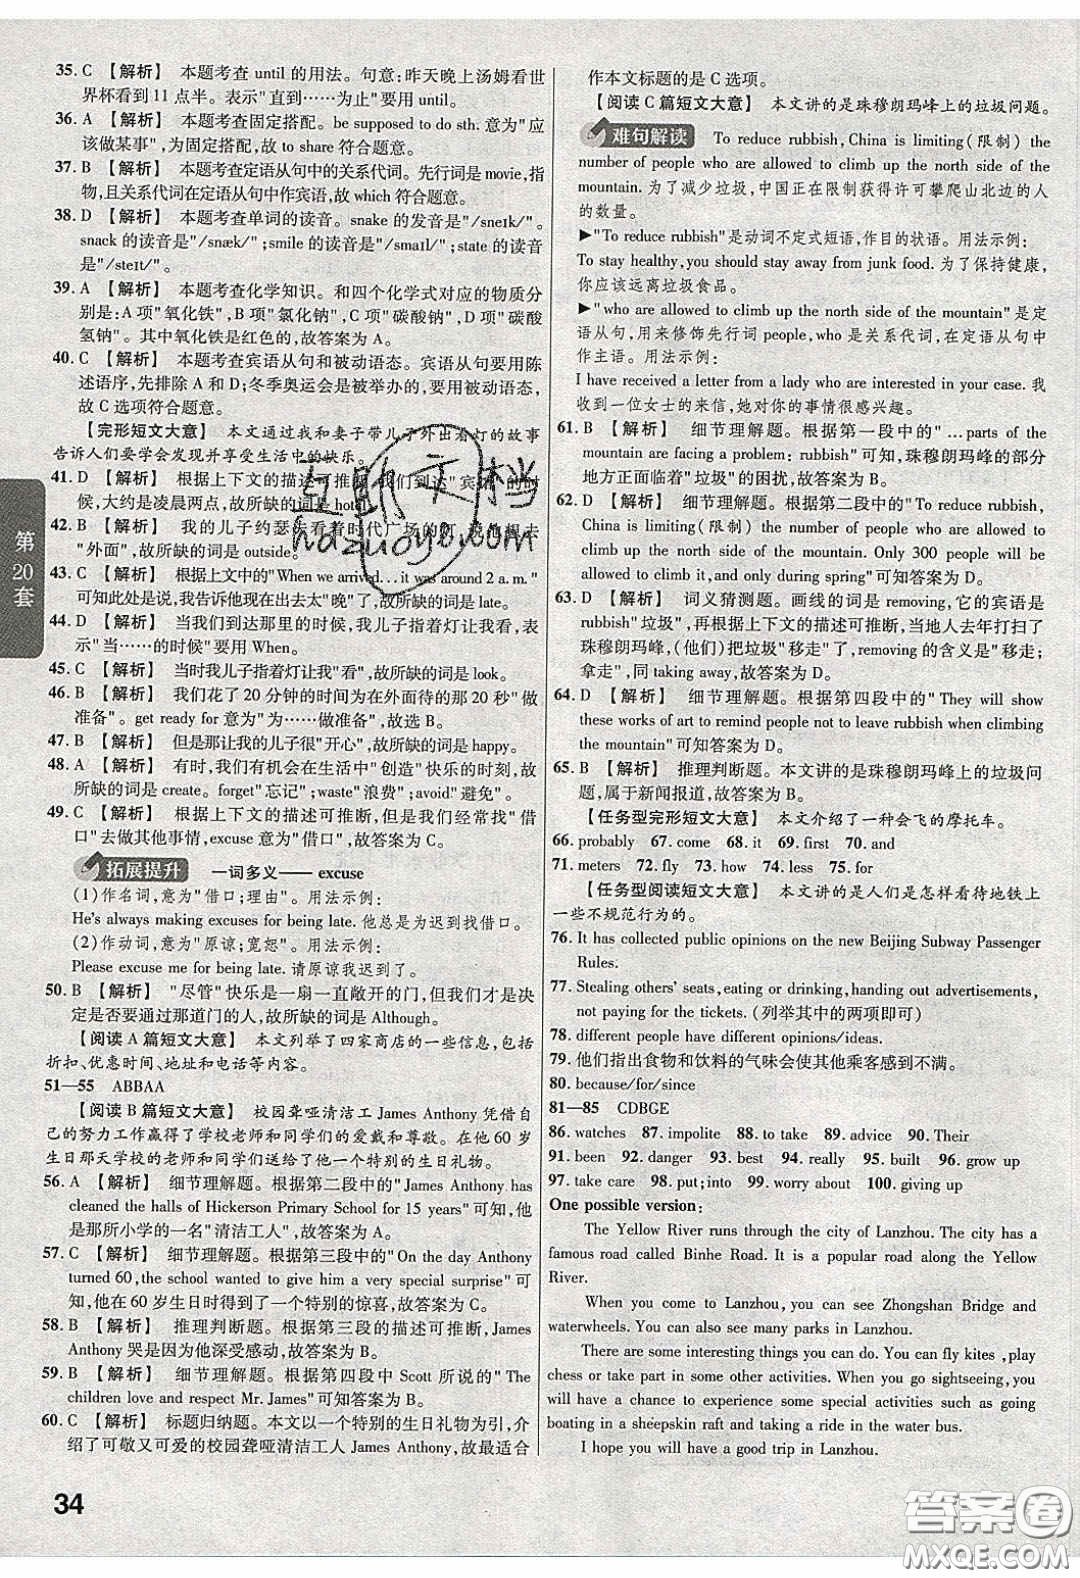 35. C 【解析】 本题考查 until 的用法。句意:昨天晚上汤姆看世
界杯看到 11 点半。表示"直到……为止"要用 until。
36. A 【解析】 本题考查固定搭配。be supposed to do sth. 意为"应
该做某事",为固定搭配,故 to share 符合题意。
37. B 【解析】 本题考查定语从句中的关系代词。先行词是 movie,指
物,且关系代词在定语从句中作宾语,故 which 符合题意。
38. D 【解析】 本题考查单词的读音。snake 的发音是"/sneɪk/"。
snack 的读音是"/snæk/";smile 的读音是"/smaɪl/";state 的读音
是"/steɪt/"。
39. A 【解析】 本题考查化学知识。和四个化学式对应的物质分
别是:A 项"氧化铁",B 项"氯化钠",C 项"碳酸钠",D 项"碳酸
氢钠"。其中氧化铁是红色的,故答案为 A。
40. C 【解析】 本题考查宾语从句和被动语态。宾语从句要用陈
述语序,先排除 A 和 D;冬季奥运会是被举办的,要用被动语态,
故 C 选项符合题意。
【完形短文大意】 本文通过我和妻子带儿子外出看灯的故事
告诉人们要学会发现并享受生活中的快乐。
41. D 【解析】 根据上下文的描述可推断,我们到达"宾馆"的时
候,大约是凌晨两点,故所缺的词是 hotel。
42. B 【解析】 我的儿子约瑟夫看着时代广场的灯,
"外面",故所缺的词是 outside。
43. C 【解析】 根据上文中的"When we arrived…it was around 2 a. m. "
可知此处是说,我告诉他现在出去太"晚"了,故所缺的词是 late。
44. D 【解析】 当我们到达那里的时候,我儿子指着灯让我看,表
示"当……的时候"要用 When。
45. C 【解析】 当时我儿子指着灯让我"看",故所缺的词是 look。
46. B 【解析】 我们花了 20 分钟的时间为在外面待的那 20 秒"做
准备"。get ready for 意为"为……做准备",故选 B。
47. B 【解析】 但是那让我的儿子很"开心",故所缺的词是 happy。
48. A 【解析】 有时,我们有机会在生活中"创造"快乐的时刻,故
所缺的词是 create。forget"忘记";waste"浪费";avoid"避免"。
49. C 【解析】 根据上下文的描述可推断,但是我们经常找"借
口"去做其他事情,excuse 意为"借口",故答案为 C。
拓展提升 一词多义—— excuse
(1)作名词,意为"借口;理由"。用法示例:
He's always making excuses for being late. 他总是为迟到找借口。
(2)作动词,意为"原谅;宽恕"。用法示例:
Please excuse me for being late. 请原谅我迟到了。
50. B 【解析】 "尽管"快乐是一扇一直敞开的门,但我们才是决
定是否要通过那道门的人,故所缺的词是 Although。
【阅读 A 篇短文大意】 本文列举了四家商店的一些信息,包括
折扣、优惠时间、地址和电话等内容。
51—55 ABBAA
【阅读 B 篇短文大意】 校园聋哑清洁工 James Anthony 凭借自
己的努力工作赢得了学校老师和同学们的爱戴和尊敬。在他 60 岁
生日那天学校的老师和同学们送给了他一个特别的生日礼物。
56. A 【解析】 细节理解题。根据第二段中的"James Anthony has
cleaned the halls of Hickerson Primary School for 15 years"可知,
他是那所小学的一名"清洁工人",故答案为 A。
57. C 【解析】 细节理解题。根据第三段中的"On the day Anthony
turned 60, the school wanted to give him a very special surprise"可
知,他在 60 岁生日时得到了一个特别的惊喜,故答案为 C。
58. B 【解析】 推理判断题。根据第三段的描述可推断,James
Anthony 哭是因为他深受感动,故答案为 B。
59. B 【解析】 细节理解题。根据第四段中 Scott 所说的"The
children love and respect Mr. James"可知答案为 B。
60. C 【解析】 标题归纳题。本文以一个特别的生日礼物为引,介
绍了可敬又可爱的校园聋哑清洁工人 James Anthony,故最适合
作本文标题的是 C 选项。
【阅读 C 篇短文大意】 本文讲的是珠穆朗玛峰上的垃圾问题。
难句解读 To reduce rubbish, China is limiting(限制) the
number of people who are allowed to climb up the north side of the
mountain. 为了减少垃圾,中国正在限制获得许可攀爬山北边的人
的数量。
▶"To reduce rubbish"是动词不定式短语,作目的状语。用法示例:
To stay healthy, you should stay away from junk food. 为了保持健康,
你应该远离垃圾食品。
▶"who are allowed to climb up the north side of the mountain"是定
语从句,用来修饰先行词 people,who 是关系代词,在定语从句中
作主语。用法示例:
I have received a letter from a lady who are interested in your case. 我
收到一位女士的来信,她对你的事情很感兴趣。
61. B 【解析】 细节理解题。根据第一段中的"…parts of the
mountain are facing a problem: rubbish"可知,珠穆朗玛峰的部分
地方正面临着"垃圾"的困扰,故答案为 B。
62. D 【解析】 细节理解题。根据第二段中的"To reduce rubbish,
China is limiting(限制) the number of people who are allowed to
climb up the north side of the mountain. Only 300 people will be
allowed to climb it, and only during spring"可知答案为 D。
63. D 【解析】 词义猜测题。画线的词是 removing,它的宾语是
rubbish"垃圾",再根据上下文的描述可推断,当地人去年打扫了
珠穆朗玛峰,(他们)把垃圾"移走"了,removing 的含义是"移走;
拿走",同 taking away,故答案为 D。
64. D 【解析】 细节理解题。根据第四段中的"They will show
these works of art to remind people not to leave rubbish when climbing
the mountain"可知答案为 D。
65. B 【解析】 推理判断题。本文讲的是珠穆朗玛峰上的垃圾问
题,属于新闻报道,故答案为 B。
【任务型完形短文大意】 本文介绍了一种会飞的摩托车。
66. probably 67. come 68. it 69. first 70. and
71. meters 72. fly 73. how 74. less 75. for
【任务型阅读短文大意】 本文讲的是人们是怎样看待地铁上
一些不规范行为的。
76. It has collected public opinions on the new Beijing Subway Passenger
Rules.
77. Stealing others' seats, eating or drinking, handing out advertisements,
not paying for the tickets. (列举其中的两项即可)
78. different people have different opinions/ideas.
79. 他们指出食物和饮料的气味会使其他乘客感到不满。
80. because/for/since
81—85 CDBGE
86. watches 87. impolite 88. to take 89. advice 90. Their
91. been 92. danger 93. best 94. really 95. built 96. grow up
97. take care 98. put;into 99. worry about 100. giving up
One possible version:
The Yellow River runs through the city of Lanzhou. The city has a
famous road called Binhe Road. It is a popular road along the Yellow
River.
When you come to Lanzhou, you can see Zhongshan Bridge and
waterwheels. You can also see many parks in Lanzhou.
There are some interesting things you can do. You can fly kites, play
chess or take part in some other activities. When you go sightseeing, you'd
better take part in some activities. You can enjoy some special activities such as going
boating in a sheepskin raft and taking a ride in the water bus.
I hope you will have a good trip in Lanzhou.
第20套
34
互助文档
hdzuoye.com
答案圈
MXQE.COM